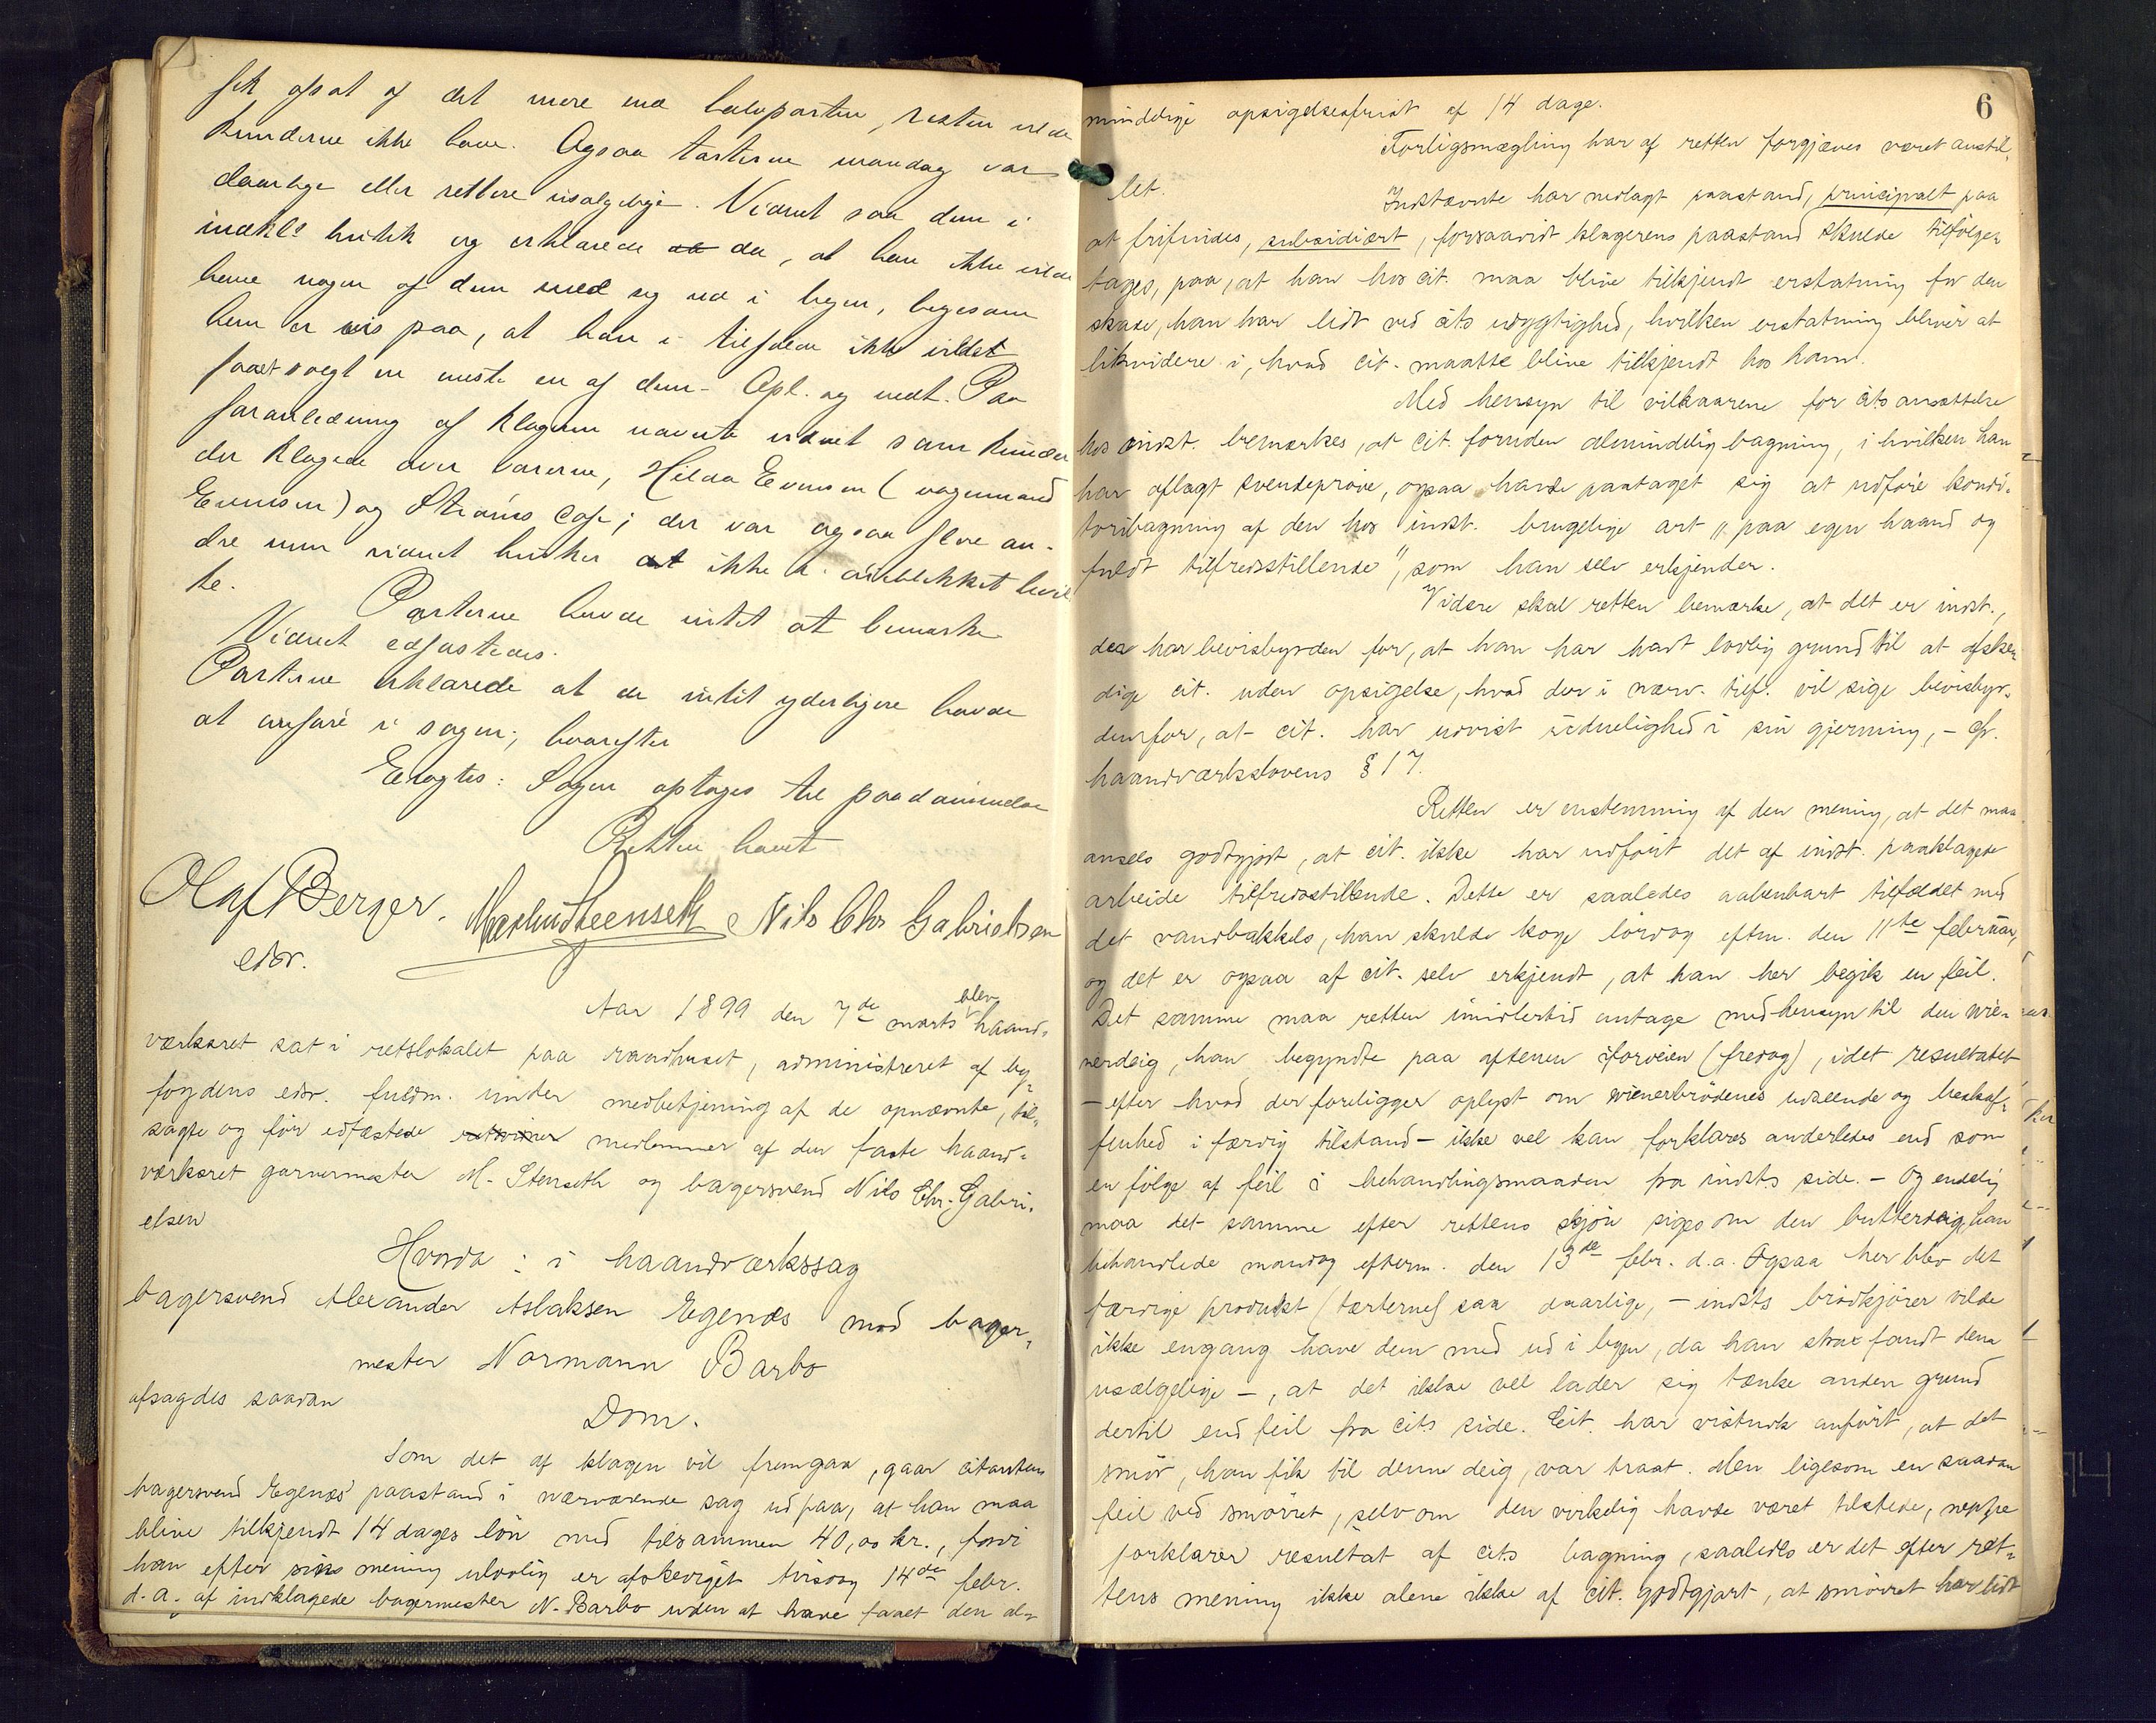 fik afsat af det mere end halvparten, resten vilde
kunderne ikke have. Ogsaa tarterne mandag var
daarlige eller rettere usalgelige. Vidnet saa dem i
indkl's butik og erklærede da, at han ikke vilde
have nogen af dem med sig ud i byen, ligesom
han er vis paa, at han i tilfælde ikke vildet
faaet solgt en eneste en af dem. Opl. og vedt. Paa
foranledning af klageren nævnte vidnet som kunder
der klagede over varerne, Hilda Evensen (vognmand
Evensen) og Strøms Cafe; der var ogsaa flere an-
dre men vidnet husker ikke i øieblikket hvil
ke.
Parterne havde intet at bemærke
Vidnet edfæstedes.
Parterne erklærede at de intet yderligere havde
at anføre i sagen; hvorefter
Eragtes: Sagen optages til paadømmelse
Retten hævet
Olaf Berger. Nils Chr Gabrielsen
edsv.
Aar 1899 den 7de marts blev haand-
værksret sat i retslokalet paa raadhuset, administreret af by-
fogdens edsv. fuldm. under medbetjening af de opnævnte, til-
sagte og før edfæstede medlemmer af den faste haand-
værksret garvermester M. Stenseth og bagersvend Nils Chr. Gabri-
elsen
Hvorda: i haandværkssag
bagersvend Alexander Aslaksen Egenæs mod bager-
mester Normann Barbo
afsagdes saadan
Dom.
Som det af klagen vil fremgaa, gaar citanten
bagersvend Egenæs' paastand i nærværende sag ud paa, at han maa
blive tilkjendt 14 dages løn med tilsammen 40,00 kr., fordi
han efter sin mening ulovlig er afskediget tirsdag 14de febr.
d.a. af indklagede bagermester N. Barbo uden at have faaet den al-
6
mindelige opsigelsesfrist af 14 dage.
Forligsmægling har af retten forgjæves været anstil-
let.
Indstævnte har nedlagt paastand, principalt paa
at frifindes, subsidiært, forsaavidt klagerens paastand skulde tilfølge-
tages, paa, at han hos cit. maa blive tilkjendt erstatning for den
skade, han har lidt ved cits udygtighed, hvilken erstatning bliver at
likvidere i, hvad cit. maatte blive tilkjendt hos ham.
Med hensyn til vilkaarene for cits ansættelse
hos indst. bemærkes, at cit. foruden almindelig bagning, i hvilken han
har aflagt svendeprøve, ogsaa havde paataget sig at udføre kondi-
toribagning af den hos indst. brugelige art "paa egen haand og
fuldt tilfredsstillende", som han selv erkjender.
Videre skal retten bemærke, at det er indst.,
der har bevisbyrden for, at han har havt lovlig grund til at afske-
dige cit. uden opsigelse, hvad der i nærv. tilf. vil sige bevisbyr-
den for, at cit. har udvist uduelighed i sin gjerning, - cfr.
haandværkslovens § 17.
Retten er enstemmig af den mening, at det maa
ansees godtgjort, at cit. ikke har udført det af indst. paaklagede
arbeide tilfredsstillende. Dette er saaledes aabenbart tilfældet med
det vandbakkels, han skulde koge lørdag efterm. den 11te februar,
og det er ogsaa af cit. selv erkjendt, at han her begik en feil.
Det samme maa retten imidlertid antage med hensyn til den wie-
nerdeig, han begyndte paa aftenen iforveien (fredag), idet resultatet
- efter hvad der foreligger oplyst om wienerbrødenes udseende og beskaf-
fenhed i færdig tilstand - ikke vel kan forklares anderledes end som
en følge af feil i behandlingsmaaden fra indsts side. - Og endelig
maa det samme efter rettens skjøn siges om den butterdeig, han
behandlede mandag efterm. den 13de febr. d.a. Ogsaa her blev det
færdige produkt (tærterne) saa daarlige, - indsts brødkjører vilde
ikke engang have dem med ud i byen, da han strax fandt dem
usælgelige -, at det ikke vel lader sig tænke anden grund
dertil end feil fra cits side. Cit. har vistnok anført, at det
smør, han fik til denne deig, var traat. Men ligesom en saadan
feil ved smørret, selv om den virkelig havde været tilstede, neppe
forklarer resultat af cits bagning, saaledes er det efter ret-
tens mening ikke alene ikke af cit. godtgjort, at smørret har lidt